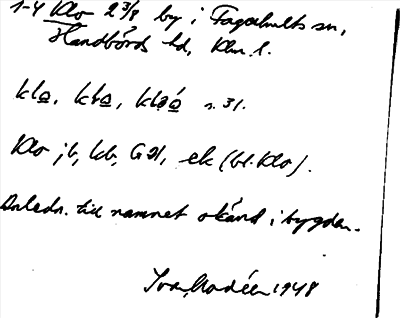 1-4 Klo 2 3/8 by i Fagerhults sn,
Handbörds hd, Klm. l.
klo, klo, kloó s. 31.
Klo jb, kb, GA, ek (bl. Klo).
Anledn. till namnet okänd i bygden.
Ivar Modéer 1948